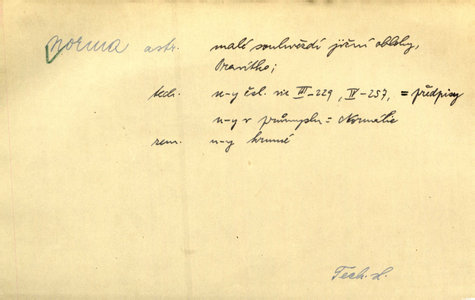 norma astr. malé souhvězdí jižní oblohy,
Pravítko;
techn. n-y čsl. viz III-229, IV-257, = předpisy
n-y v průmyslu = Normálie
zem. n-y krmné
Tech. sl.